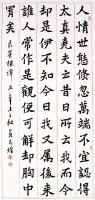 人情世態倏忽萬端不宜認得
太真堯夫云昔日所云我而今
却是伊不知今日我又屬後來
誰人常作是觀便可解却胸中
罥矣
菜根譚